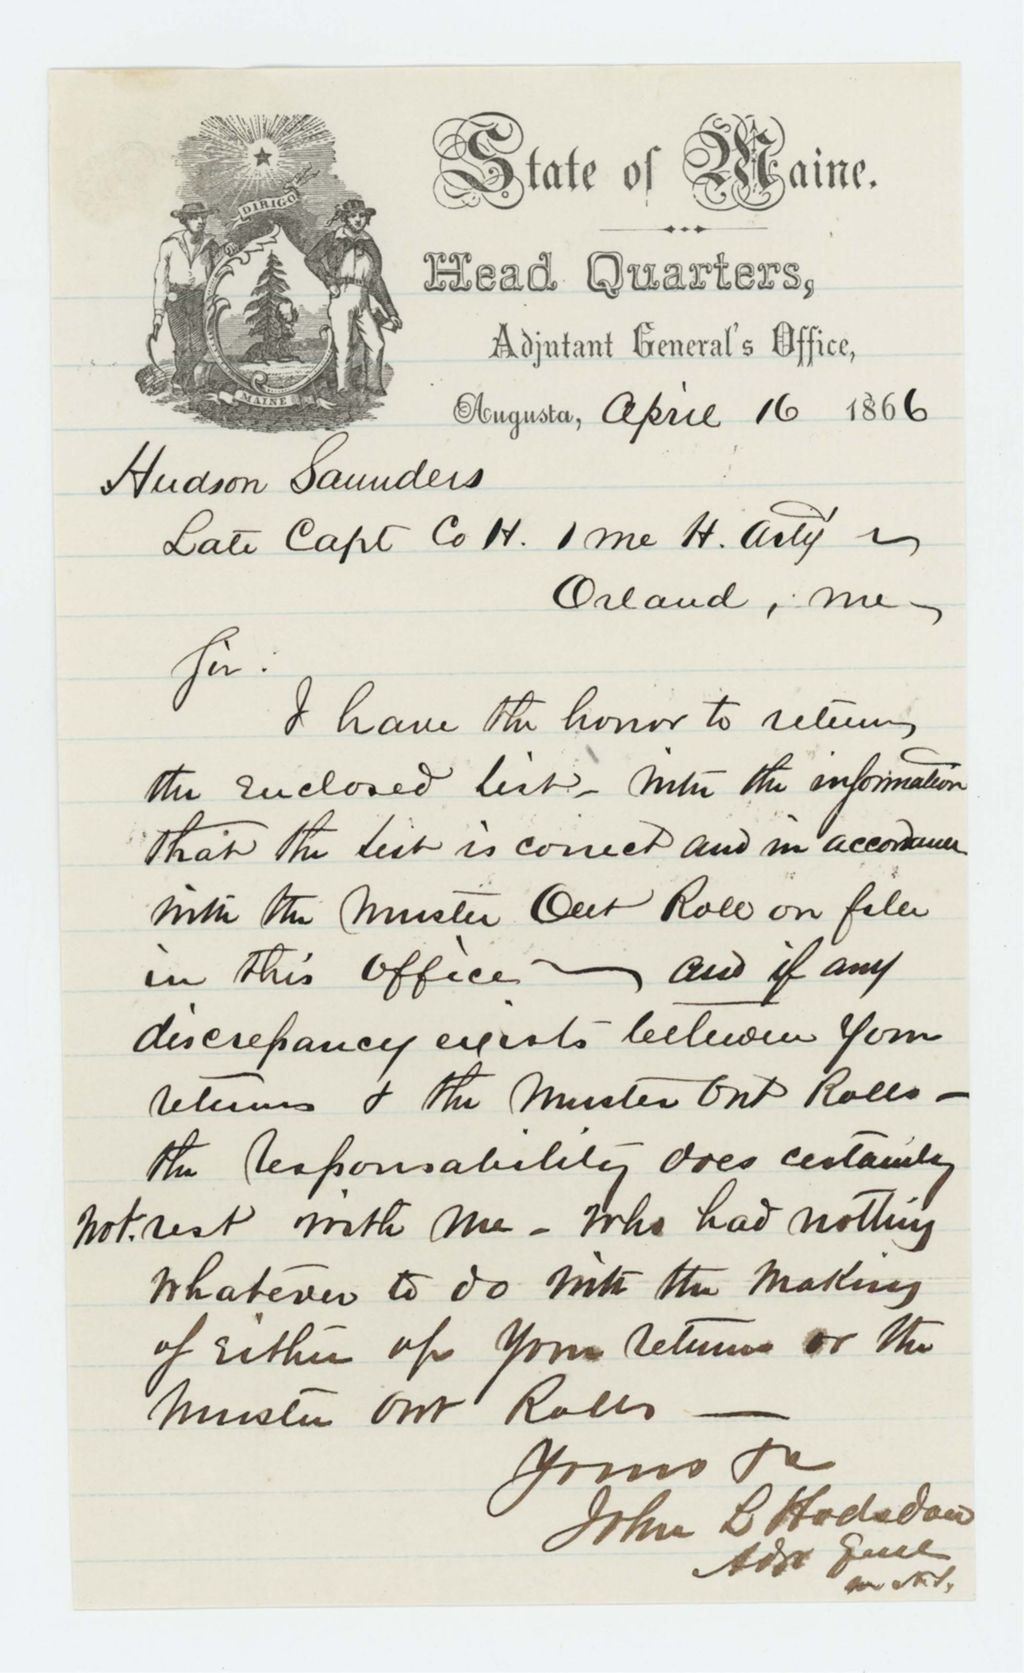 DIRIGO
MAINE
State of Maine.
Head Quarters,
Adjutant General's Office,
Augusta, April 16 1866
Hudson Saunders
Late Capt Co H. 1 Me H. Arty
Orland, Me
Sir:
I have the honor to return
the enclosed list - with the information
that the list is correct and in accordance
with the Muster Out Roll on file
in this office - and if any
discrepancy exists between your
returns & the Muster Out Rolls -
the responsability does certainly
not rest with me - who had nothing
whatever to do with the making
of either of your returns or the
Muster Out Rolls -
Yours &c
John L Hodsdon
Adjt Genl